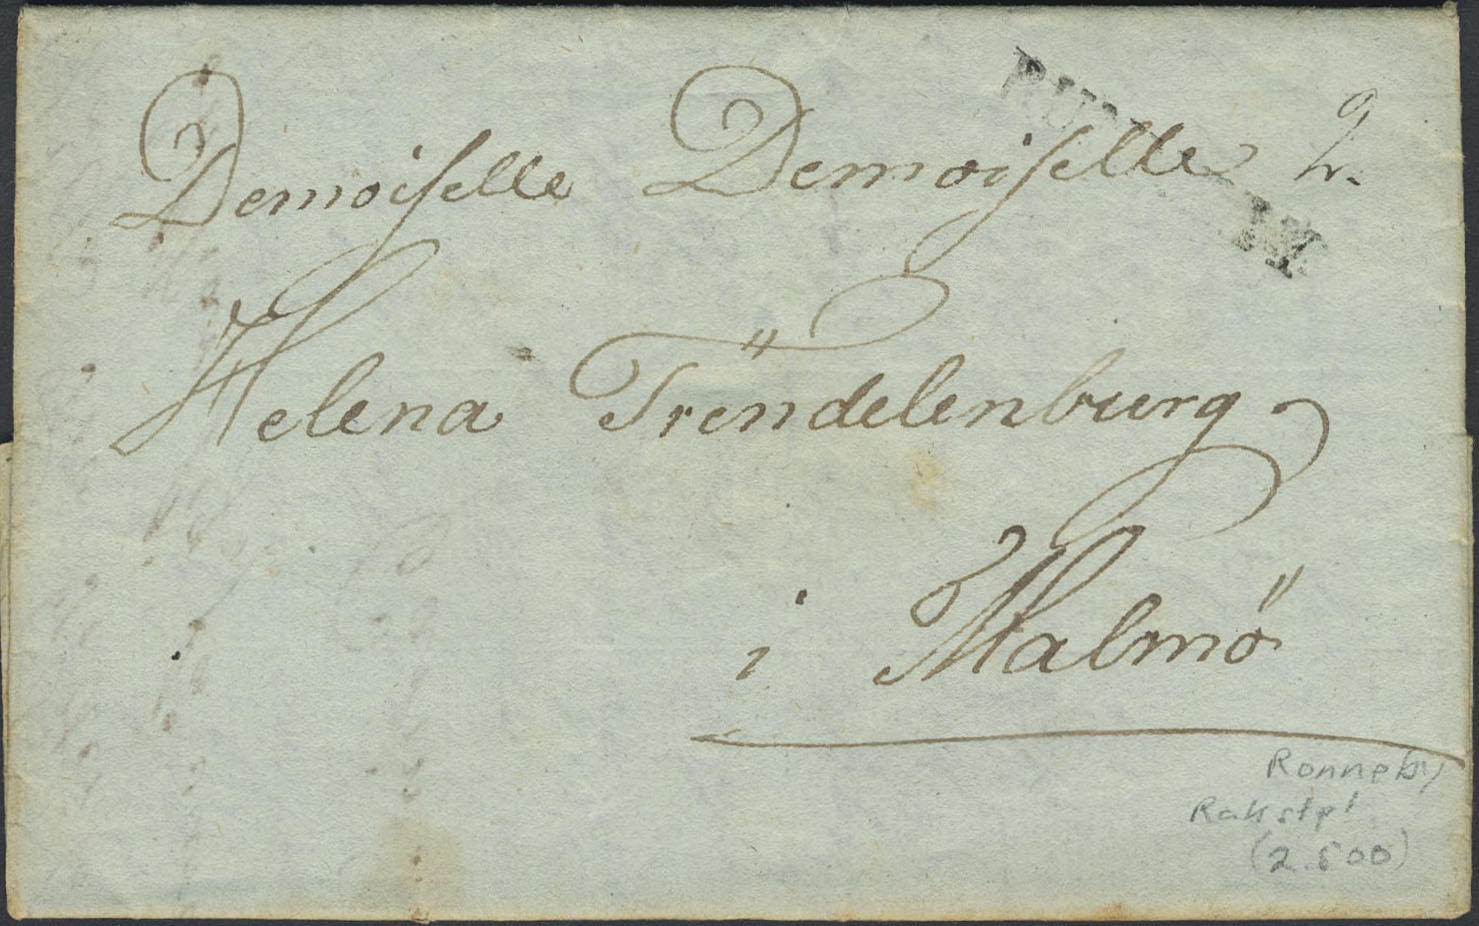 Demoiselle Demoiselle
Helena Trëndelenburg
i Malmö
Ronneby
Rak stpl
(2.500)